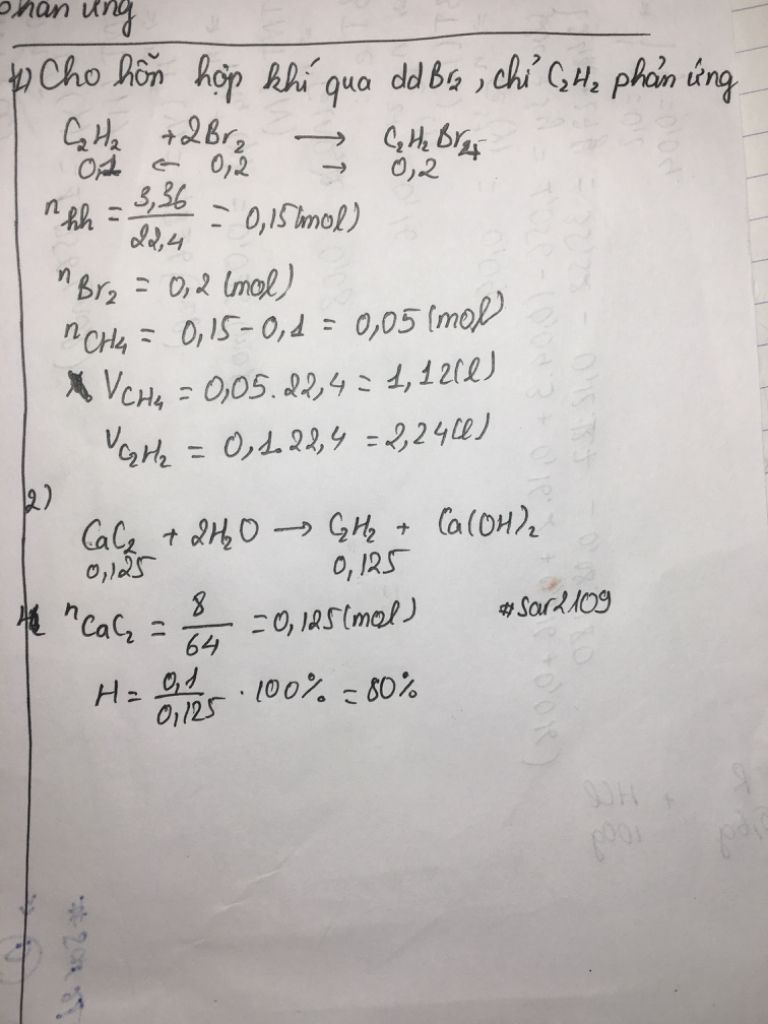 phản ứng
1) Cho hỗn hợp khí qua ddBr₂, chỉ C₂H₂ phản ứng
C₂H₂ + 2Br₂ → C₂H₂Br₄
0,1 ← 0,2 → 0,2
nhh = 3,36/22,4 = 0,15(mol)
nBr₂ = 0,2 (mol)
nCH₄ = 0,15 - 0,1 = 0,05 (mol)
VCH₄ = 0,05.22,4 = 1,12(l)
VC₂H₂ = 0,1.22,4 = 2,24(l)
2)
CaC₂ + 2H₂O → C₂H₂ + Ca(OH)₂
0,125 0,125
nCaC₂ = 8/64 = 0,125(mol) #Sar2109
H = 0,1/0,125 . 100% = 80%